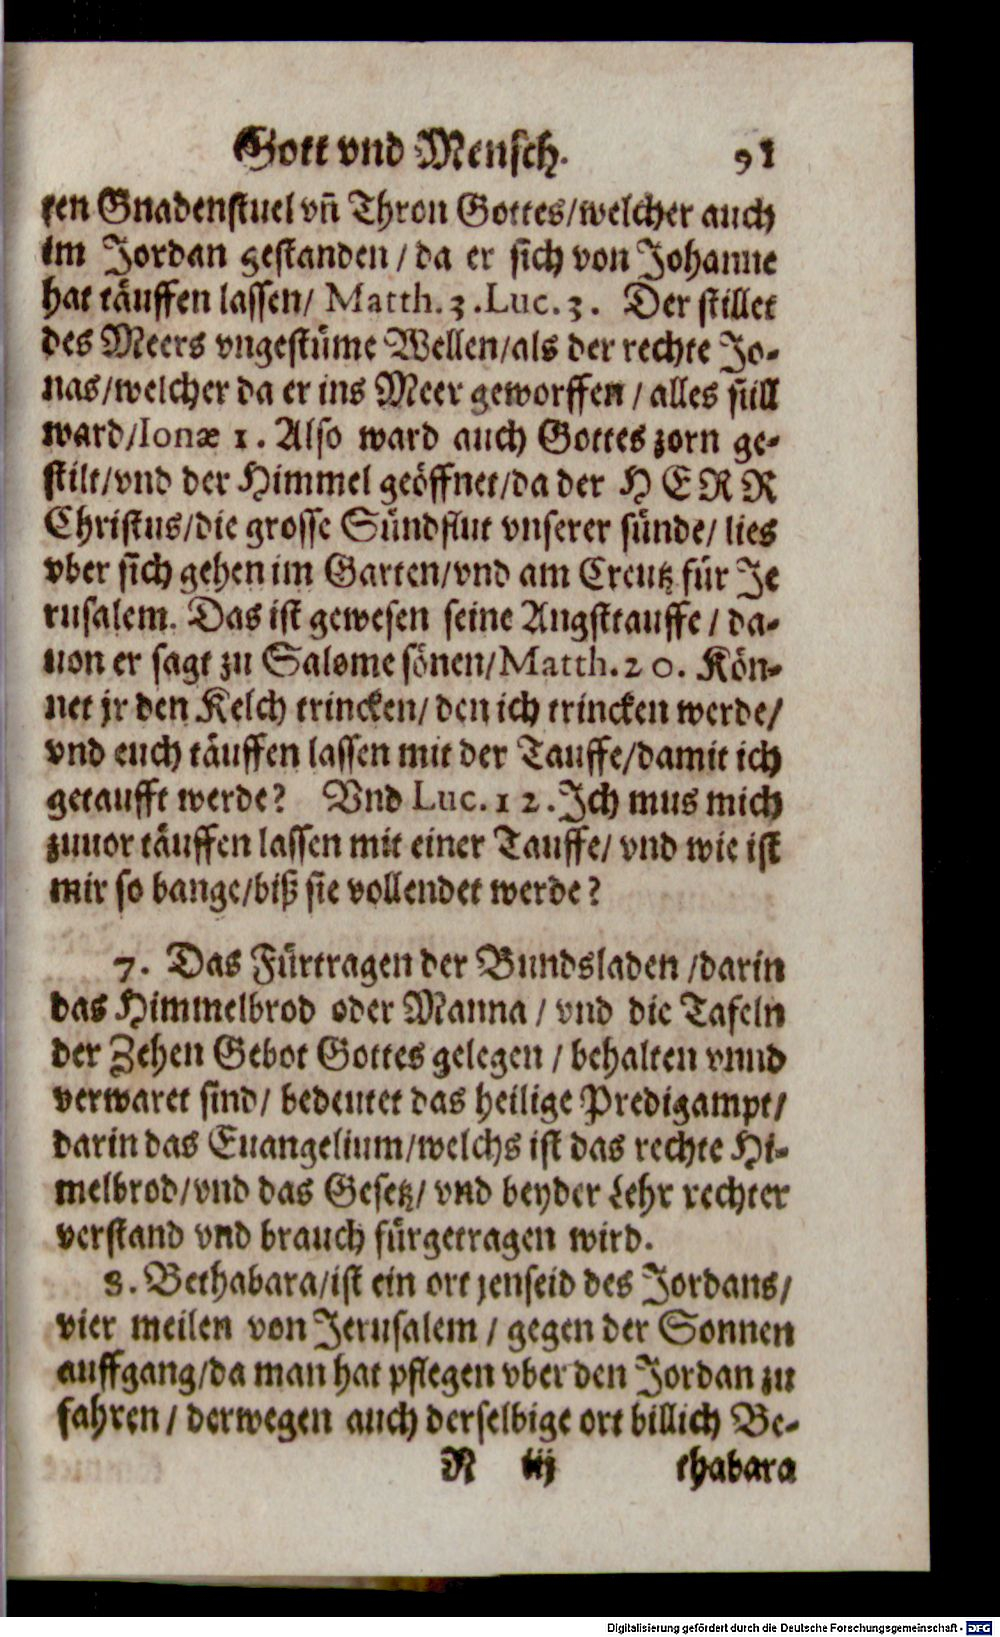 Gott vnd Mensch. 91
ten Gnadenstuel vñ Thron Gottes/welcher auch
im Jordan gestanden / da er sich von Johanne
hat täuffen lassen/ Matth. 3. Luc. 3. Der stillet
des Meers vngestüme Wellen/als der rechte Jo-
nas/welcher da er ins Meer geworffen / alles still
ward/Ionæ 1. Also ward auch Gottes zorn ge-
stilt/vnd der Himmel geöffnet/da der HERR
Christus/die grosse Sündflut vnserer sünde/ lies
vber sich gehen im Garten/vnd am Creutz für Je
rusalem. Das ist gewesen seine Angsttauffe / da-
uon er sagt zu Salome sönen/Matth. 20. Kön-
net jr den Kelch trincken/ den ich trincken werde/
vnd euch täuffen lassen mit der Tauffe/damit ich
getaufft werde? Vnd Luc. 12. Ich mus mich
zuuor täuffen lassen mit einer Tauffe/ vnd wie ist
mir so bange/biß sie vollendet werde?
7. Das Fürtragen der Bundsladen /darin
das Himmelbrod oder Manna / vnd die Tafeln
der Zehen Gebot Gottes gelegen / behalten vnnd
verwaret sind/ bedeutet das heilige Predigampt/
darin das Euangelium/welchs ist das rechte Hi-
melbrod/vnd das Gesetz/ vnd beyder Lehr rechter
verstand vnd brauch fürgetragen wird.
8. Bethabara/ist ein ort jenseid des Jordans/
vier meilen von Jerusalem / gegen der Sonnen
auffgang/da man hat pflegen vber den Jordan zu
fahren / derwegen auch derselbige ort billich Be-
N iij thabara
Digitalisierung gefördert durch die Deutsche Forschungsgemeinschaft - DFG